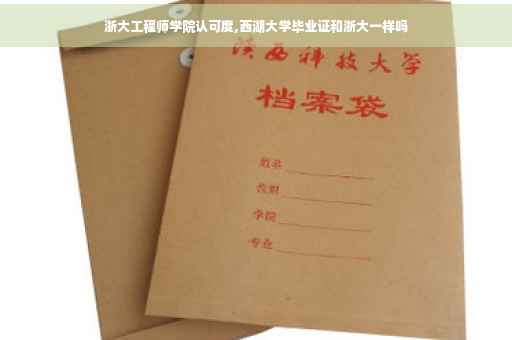 浙大工程师学院认可度,西湖大学毕业证和浙大一样吗
陕西科技大学
档案袋
姓名
学院
专业